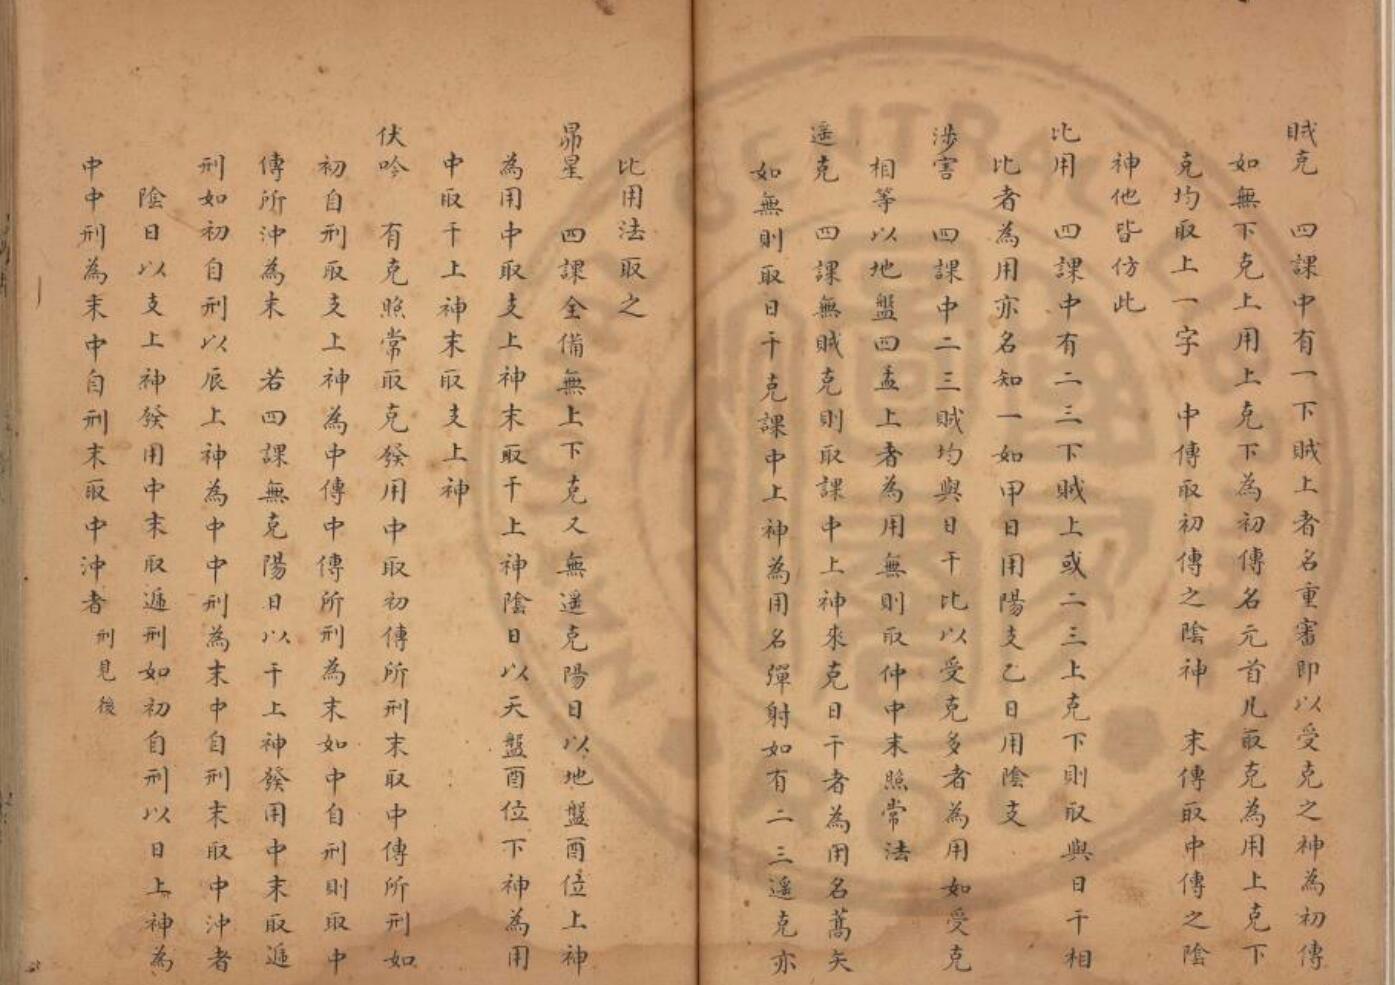 賊克　四課中有一下賊上者名重審即以受克之神為初傳
如無下克上用上克下為初傳名元首凡取克為用上克下
克均取上一字　中傳取初傳之陰神　末傳取中傳之陰
神他皆仿此
比用　四課中有二三下賊上或二三上克下則取與日干相
比者為用亦名知一如甲日用陽支乙日用陰支
涉害　四課中二三賊均與日干比以受克多者為用如受克
相等以地盤四孟上者為用無則取仲中末照常法
遥克　四課無賊克則取課中上神來克日干者為用名蒿矢
如無則取日干克課中上神為用名彈射如有二三遥克亦
比用法取之
昴星　四課全備無上下克又無遥克陽日以地盤酉位上神
為用中取支上神末取干上神陰日以天盤酉位下神為用
中取干上神末取支上神
伏吟　有克照常取克發用中取初傳所刑末取中傳所刑如
初自刑取支上神為中傳中傳所刑為末如中自刑則取中
傳所沖為末　若四課無克陽日以干上神發用中末取遞
刑如初自刑以辰上神為中中刑為末中自刑末取中沖者
陰日以支上神發用中末取遞刑如初自刑以日上神為
中中刑為末中自刑末取中沖者刑見後